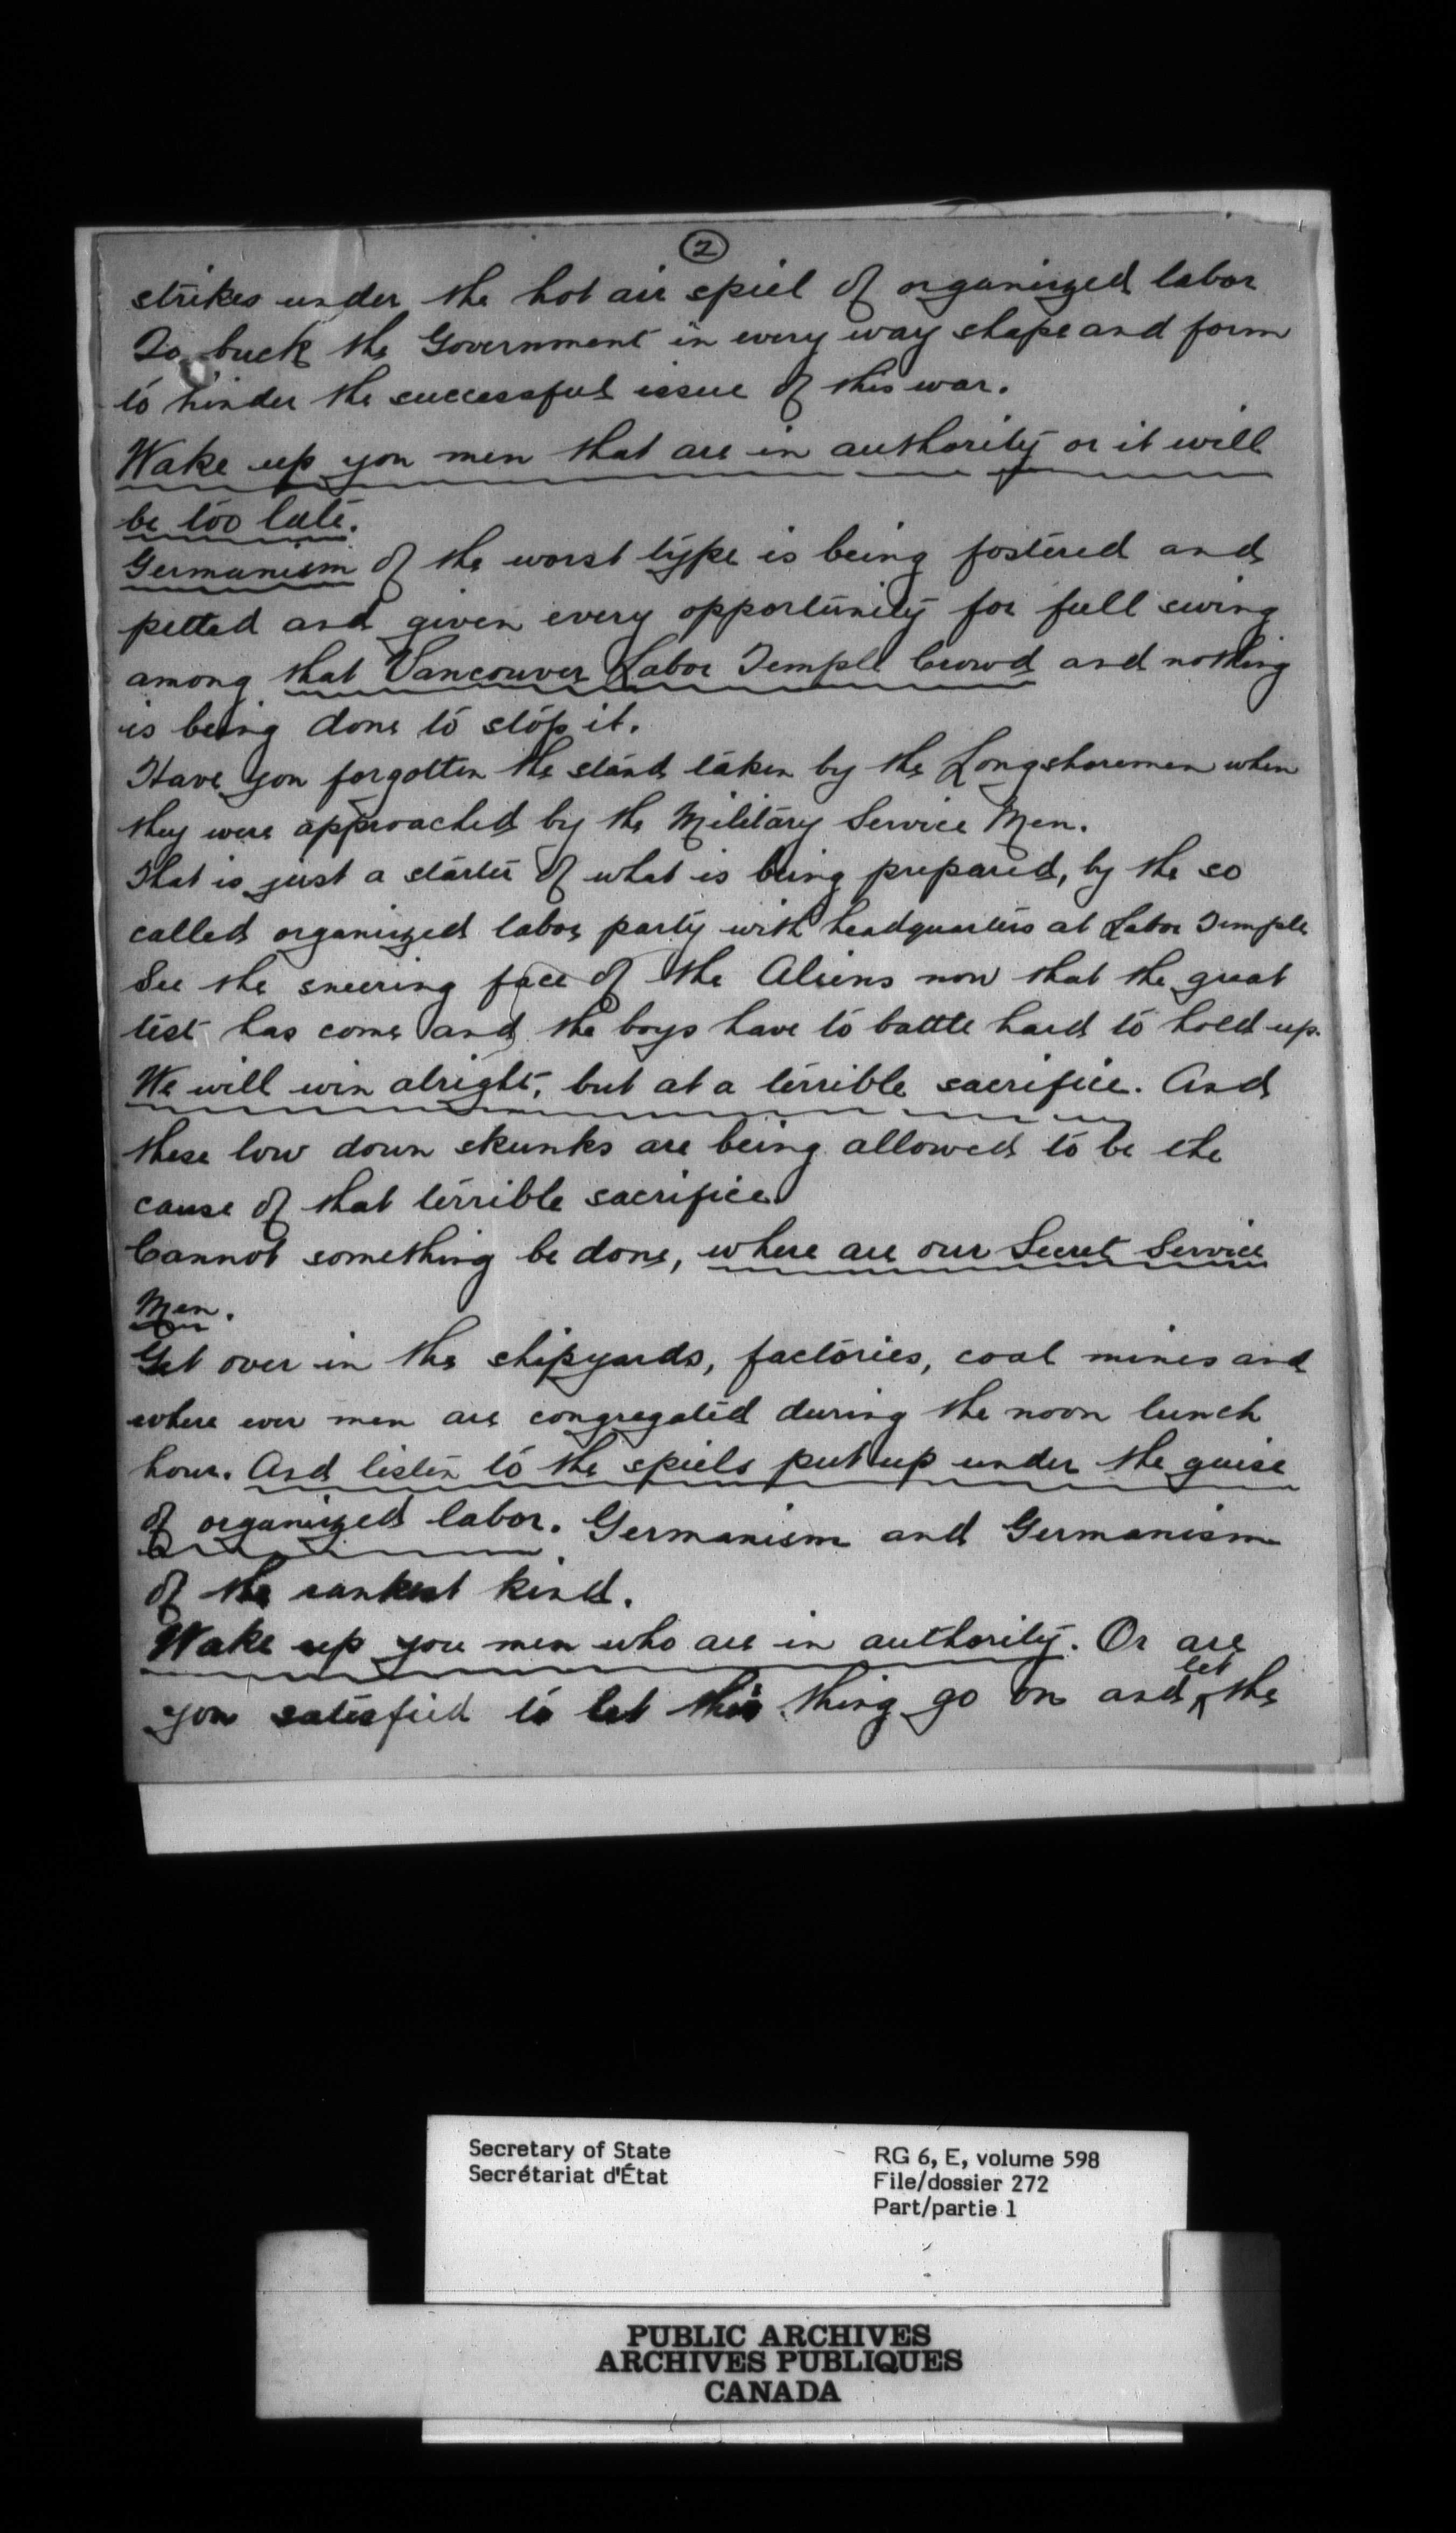 2
strikes under the hot air spiel of organized labor
To buck the Government in every way shape and form
to hinder the successful issue of this war.
Wake up you men that are in authority or it will
be too late.
Germanism of the worst type is being fostered and
petted and given every opportunity for full swing
among that Vancouver Labor Temple Crowd and nothing
is being done to stop it.
Have you forgotten the stand taken by the Longshoremen when
they were approached by the Military Service Men.
That is just a starter of what is being prepared, by the so
called organized labor party with headquarters at Labor Temple
See the sneering face of the Aliens now that the great
test has come and the boys have to battle hard to hold up.
We will win alright, but at a terrible sacrifice. And
these low down skunks are being allowed to be the
cause of that terrible sacrifice
Cannot something be done, where are our Secret Service
Men.
Get over in the shipyards, factories, coal mines and
where ever men are congregated during the noon lunch
hour. And listen to the spiels put up under the guise
of organized labor. Germanism and Germanism
of the rankest kind.
Wake up you men who are in authority. Or are
you satisfied to let this thing go on and let the
Secretary of State
Secrétariat d'État
RG 6, E, volume 598
File/dossier 272
Part/partie 1
PUBLIC ARCHIVES
ARCHIVES PUBLIQUES
CANADA